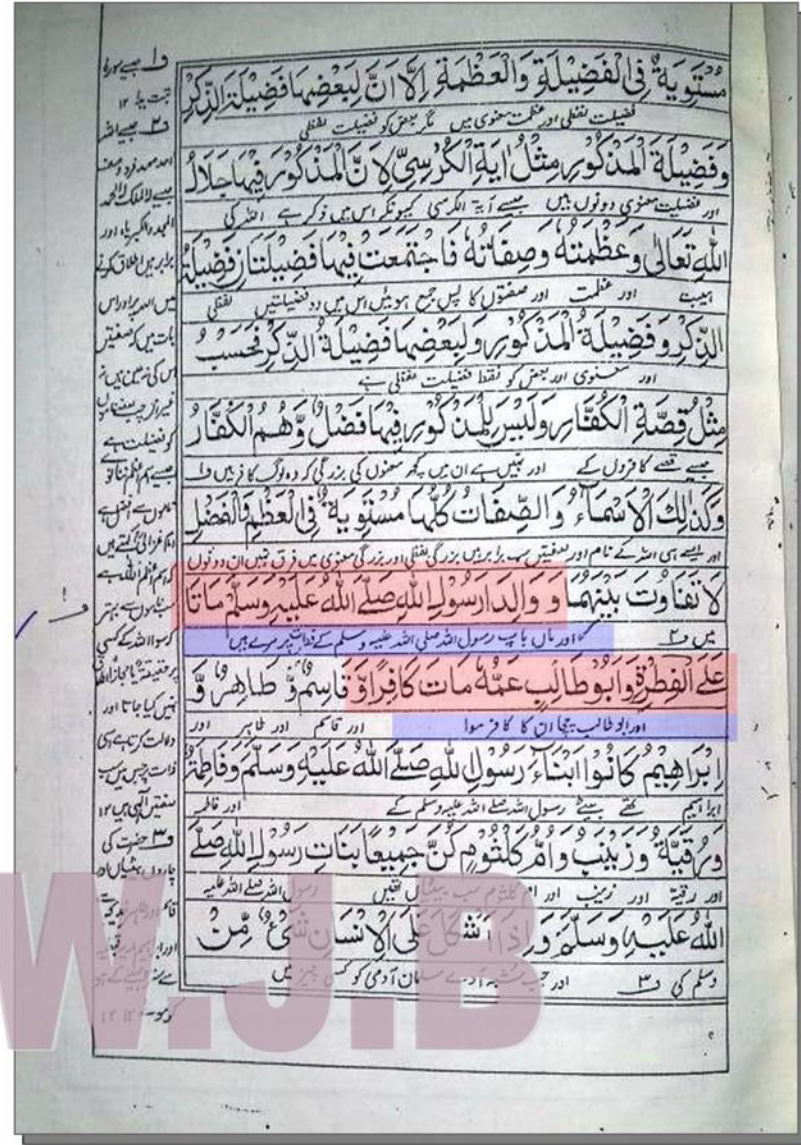 مُسْتَوِيَةٌ فِي الْفَضِيْلَةِ وَالْعَظْمَةِ اِلَّا اَنَّ لِبَعْضِهَا فَضِيْلَةَ الذِّكْرِ
فضیلت لفظی اور عظمت معنوی میں مگر بعض کو فضیلت لفظی
وَفَضِيْلَةَ الْمَذْكُوْرِ مِثْلُ اٰيَةِ الْكُرْسِيِّ لِاَنَّ الْمَذْكُوْرَ فِيْهَا جَلَالُ
اور فضیلت معنوی دونوں ہیں جیسے آیۃ الکرسی کیونکہ اس میں ذکر ہے اللہ کی
اللهِ تَعَالٰى وَعَظْمَتُهٗ وَصِفَاتُهٗ فَاجْتَمَعَتْ فِيْهَا فَضِيْلَتَانِ فَضِيْلَةُ
ہیبت اور عظمت اور صفتوں کا پس جمع ہوئیں اس میں دو فضیلتیں لفظی
الذِّكْرِ وَفَضِيْلَةُ الْمَذْكُوْرِ وَلِبَعْضِهَا فَضِيْلَةُ الذِّكْرِ فَحَسْبُ
اور معنوی اور بعض کو فقط فضیلت لفظی ہے
مِثْلُ قِصَّةِ الْكُفَّارِ وَلَيْسَ لِلْمَذْكُوْرِ فِيْهَا فَضْلٌ وَّهُمُ الْكُفَّارُ
جیسے قصے کافروں کے اور نہیں ہے ان میں کچھ معنوں کی بزرگی کہ وہ لوگ کافر ہیں ف۱
وَكَذٰلِكَ الْاَسْمَاءُ وَالصِّفَاتُ كُلُّهَا مُسْتَوِيَةٌ فِي الْعَظْمِ وَالْفَضْلِ
اور ایسے ہی اللہ کے نام اور صفتیں سب برابر ہیں بزرگی لفظی اور بزرگی معنوی میں فرق نہیں ان دونوں
لَا تَفَاوُتَ بَيْنَهُمَا وَ وَالِدَا رَسُوْلِ اللهِ صَلَّى اللهُ عَلَيْهِ وَسَلَّمَ مَاتَا
میں ف۲ اور ماں باپ رسول اللہ صلی اللہ علیہ وسلم کے فطرت پر مرے ہیں
عَلَى الْفِطْرَةِ وَاَبُوْ طَالِبٍ عَمُّهٗ مَاتَ كَافِرًا وَّ قَاسِمٌ وَّ طَاهِرٌ وَّ
اور ابو طالب چچا ان کا کافر موا اور قاسم اور طاہر اور
اِبْرَاهِيْمُ كَانُوْا اَبْنَاءَ رَسُوْلِ اللهِ صَلَّى اللهُ عَلَيْهِ وَسَلَّمَ وَفَاطِمَةُ
ابراہیم تھے بیٹے رسول اللہ صلے اللہ علیہ وسلم کے اور فاطمہ
وَرُقَيَّةُ وَزَيْنَبُ وَاُمُّ كُلْثُوْمٍ كُنَّ جَمِيْعًا بَنَاتِ رَسُوْلِ اللهِ صَلَّى
اور رقیہ اور زینب اور ام کلثوم سب بیٹیاں تھیں رسول اللہ صلے اللہ علیہ
اللهُ عَلَيْهِ وَسَلَّمَ وَاِذَا اَشْكَلَ عَلَى الْاِنْسَانِ شَيْءٌ مِّنْ
وسلم کی ف۳ اور جب مسلمان آدمی کو کسی چیز میں
ف۱ جیسے سورۂ
تبت یدا ۱۲
ف۲ جیسے اللہ
المجد والکبریاء اور
بات میں کہ صفتیں
کو فضیلت ہے
نہیں کیا جاتا اور
ذات پر جس میں سب
صفتیں الٰہی ہیں ۱۲
ف۳ حضرت کی
چاروں بیٹیاں
W.J.B